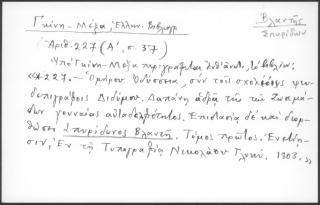 Γκίνη - Μέξα, Ἑλλην. Βιβλιογρ.
Βλαντῆς
Σπυρίδων
Ἀριθ. 227 (Α', σ. 37)
Ὑπὸ Γκίνη - Μέξα περιγράφεται τὸ βιβλίον:
«*227. — Ὁμήρου Ὀδύσσεια, σὺν τοῖς σχολίοις ψευ-
δεπιγράφοις Διδύμου. Δαπάνῃ ἁδρᾷ τῶν Ζωσιμά-
δων γενναίας αὐταδελφότητος. Ἐπιστασίᾳ δὲ καὶ διορ-
θώσει Σπυρίδωνος Βλαντῆ. Τόμος πρῶτος. Ἐνετίῃ-
σιν, Ἐν τῇ Τυπογραφίᾳ Νικολάου Γλυκύ. 1803.»